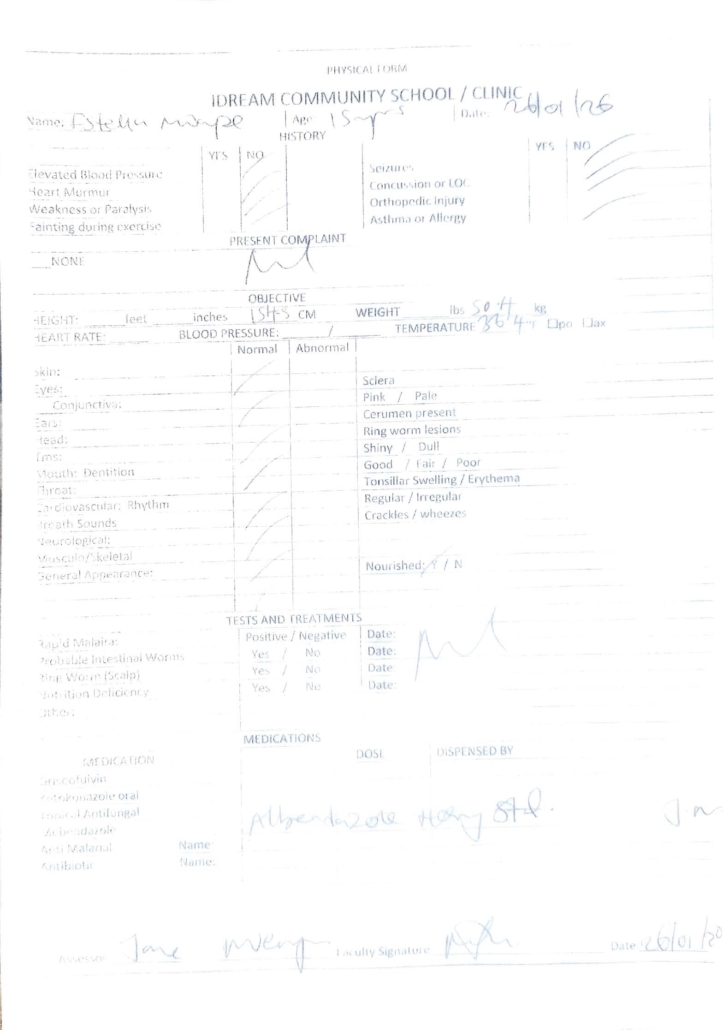 PHYSICAL FORM
IDREAM COMMUNITY SCHOOL / CLINIC
Name: Age: 15yrs Date: 26/01/26
HISTORY
YES NO YES NO
Elevated Blood Pressure Seizures
Heart Murmur Concussion or LOC
Weakness or Paralysis Orthopedic Injury
Fainting during exercise Asthma or Allergy
PRESENT COMPLAINT
NONE Nil
OBJECTIVE
HEIGHT: feet inches 154.5 CM WEIGHT lbs 50.4 kg
HEART RATE: BLOOD PRESSURE: / TEMPERATURE 36.4 °F □po □ax
Normal Abnormal
Skin:
Eyes: Sclera
Conjunctiva: Pink / Pale
Ears: Cerumen present
Head: Ring worm lesions
Shiny / Dull
Mouth: Dentition Good / Fair / Poor
Throat: Tonsillar Swelling / Erythema
Cardiovascular: Rhythm Regular / Irregular
Breath Sounds Crackles / wheezes
Neurological:
Musculo/Skeletal
General Appearance: Nourished: Y / N
TESTS AND TREATMENTS
Rapid Malaira: Positive / Negative Date: Nil
Probable Intestinal Worms Yes / No Date:
Ring Worm (Scalp) Yes / No Date
Nutrition Deficiency Yes / No Date:
Other:
MEDICATIONS
MEDICATION DOSE DISPENSED BY
Griscofulvin
Ketokonazole oral
Topical Antifungal Albendazole Std. J.m
Mebendazole
Anti Malarial Name:
Antibiotic Name:
Assessor Jane Faculty Signature Date: 26/01/20